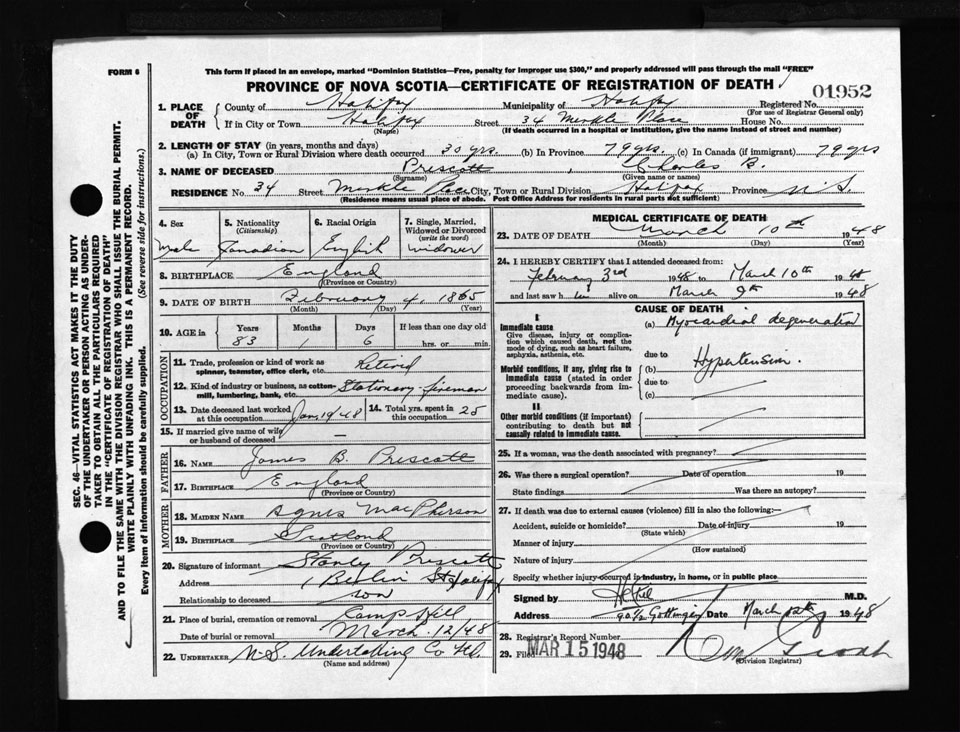 FORM 6
This form if placed in an envelope, marked "Dominion Statistics—Free, penalty for improper use $300," and properly addressed will pass through the mail "FREE"
PROVINCE OF NOVA SCOTIA—CERTIFICATE OF REGISTRATION OF DEATH
01952
1. PLACE OF DEATH
County of Halifax Municipality of Halifax Registered No.
(For use of Registrar General only)
If in City or Town Halifax Street 34 Merkle Place House No.
(Name) (If death occurred in a hospital or institution, give the name instead of street and number)
2. LENGTH OF STAY (in years, months and days)
(a) In City, Town or Rural Division where death occurred 30 yrs. (b) In Province 79 yrs. (c) In Canada (if immigrant) 79 yrs
3. NAME OF DECEASED Prescott, Charles B.
(Surname) (Given name or names)
RESIDENCE No. 34 Street Merkle Place City, Town or Rural Division Halifax Province N.S.
(Residence means usual place of abode. Post Office Address for residents in rural parts not sufficient)
4. Sex
Male
5. Nationality (Citizenship)
Canadian
6. Racial Origin
English
7. Single, Married, Widowed or Divorced (write the word)
widower
8. BIRTHPLACE England
(Province or Country)
9. DATE OF BIRTH February 4, 1865
(Month) (Day) (Year)
10. AGE in Years Months Days If less than one day old
83 1 6 hrs. or min.
OCCUPATION
11. Trade, profession or kind of work as spinner, teamster, office clerk, etc. Retired
12. Kind of industry or business, as cotton-mill, lumbering, bank, etc. Stationary fireman
13. Date deceased last worked at this occupation Jan 19/48
14. Total yrs. spent in this occupation 25
15. If married give name of wife or husband of deceased —
FATHER
16. NAME James B. Prescott
17. BIRTHPLACE England
(Province or Country)
MOTHER
18. MAIDEN NAME Agnes MacPherson
19. BIRTHPLACE Scotland
(Province or Country)
20. Signature of informant Stanly Prescott
Address 1 Berlin St Halifax
Relationship to deceased son
21. Place of burial, cremation or removal Camp Hill
Date of burial or removal March 12/48
22. UNDERTAKER N.S. Undertaking Co Ltd.
(Name and address)
MEDICAL CERTIFICATE OF DEATH
23. DATE OF DEATH March 10th 1948
(Month) (Day) (Year)
24. I HEREBY CERTIFY that I attended deceased from:
February 3rd 1948 to March 10th 1948
and last saw h im alive on March 9th 1948
CAUSE OF DEATH
I
Immediate cause
Give disease, injury or complication which caused death, not the mode of dying, such as heart failure, asphyxia, asthenia, etc.
(a) Myocardial degeneration
due to
Morbid conditions, if any, giving rise to immediate cause (stated in order proceeding backwards from immediate cause).
(b) Hypertension.
due to
(c)
II
Other morbid conditions (if important) contributing to death but not causally related to immediate cause.
25. If a woman, was the death associated with pregnancy?
26. Was there a surgical operation? Date of operation 19
State findings Was there an autopsy?
27. If death was due to external causes (violence) fill in also the following:—
Accident, suicide or homicide? Date of injury 19
(State which)
Manner of injury
(How sustained)
Nature of injury
Specify whether injury occurred in industry, in home, or in public place
Signed by M.D.
Address 90 1/2 Gottingen Date March 12th 1948
28. Registrar's Record Number
29. Filed MAR 15 1948
(Division Registrar)
SEC. 46—VITAL STATISTICS ACT MAKES IT THE DUTY
OF THE UNDERTAKER OR PERSON ACTING AS UNDER-
TAKER TO OBTAIN ALL THE PARTICULARS REQUIRED
IN THE "CERTIFICATE OF REGISTRATION OF DEATH"
AND TO FILE THE SAME WITH THE DIVISION REGISTRAR WHO SHALL ISSUE THE BURIAL PERMIT.
WRITE PLAINLY WITH UNFADING INK. THIS IS A PERMANENT RECORD.
Every item of information should be carefully supplied. (See reverse side for instructions.)